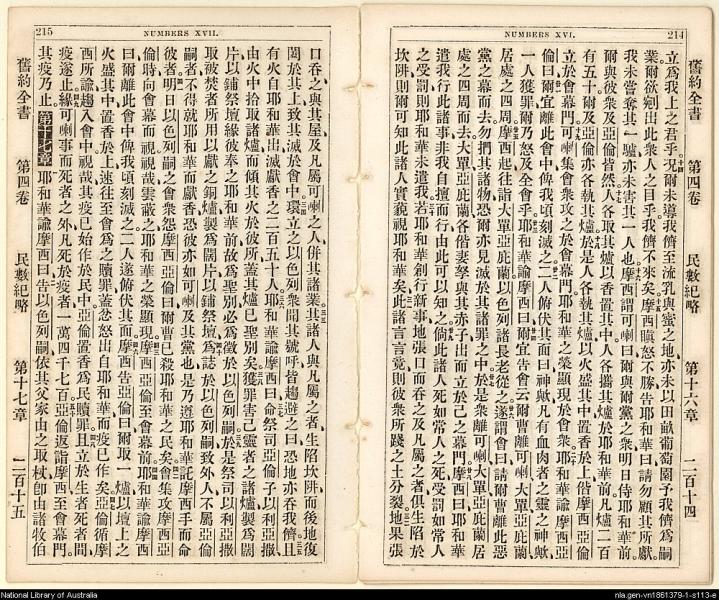 214
NUMBERS XVI.
舊約全書 第四卷 民數紀略 第十六章 二百十四
立爲我上之君乎況爾未導我儕至流乳與蜜之地亦未以田畝葡萄園予我儕爲嗣
業爾欲剜出此衆人之目乎我儕不來矣摩西瞋怒不勝告耶和華曰請勿顧其所獻
我未嘗奪其一驢亦未害其一人也摩西謂可喇曰爾與爾黨之衆明日侍耶和華前
爾與彼衆及亞倫皆然人各取其爐以香置其中人各攜其爐於耶和華前凡爐二百
有五十爾及亞倫亦各執其爐於是人各執其爐以火盛其中置香於上偕摩西亞倫
立於會幕門可喇集會衆攻之於會幕門耶和華之榮顯現於會衆耶和華諭摩西亞
倫曰爾宜離此會中俾我頃刻滅之二人俯伏其面曰神歟凡有血肉者之靈之神歟
一人獲罪爾乃怒及全會乎耶和華諭摩西曰爾宜告會云爾曹離可喇大單亞庇蘭
居處之四周摩西起往詣大單亞庇蘭以色列諸長老從之遂謂會曰請爾曹離此惡
黨之幕而去勿捫其諸物恐爾亦見滅於其諸罪之中於是衆離可喇大單亞庇蘭居
處之四周而去大單亞庇蘭各偕妻孥與赤子出而立於己之幕門摩西曰耶和華
遣我行此諸事非我自擅而行由此可以知之倘此諸人死如常人之死受罰如常人
之受罰則耶和華未遣我若耶和華創行新事地張口而吞之及凡屬之者俱生陷於
坎阱則爾可知此諸人實藐視耶和華矣此諸言言竟則彼衆所踐之土分裂地果張
215
NUMBERS XVII.
口吞之與其屋及凡屬可喇之人併其諸業其諸人與凡屬之者生陷坎阱而後地復
閡於其上致其滅於會中環立之以色列衆聞其號呼皆趨避之曰恐地亦吞我儕且
有火自耶和華出滅獻香之二百五十人耶和華諭摩西曰命祭司亞倫子以利亞撒
由火中拾取諸爐而傾其火於彼所蓋其爐已聖別矣獲罪害己靈者之諸爐製爲闊
片以鋪祭壇緣彼奉之耶和華前故爲聖別必爲徵於以色列嗣於是祭司以利亞撒
取被焚者所用以獻之銅爐製爲闊片以鋪祭壇爲誌於以色列嗣致外人不屬亞倫
嗣者不得就耶和華而獻香恐彼亦如可喇及其黨也是乃遵耶和華託摩西手而命
彼者明日以色列嗣之會衆怨摩西亞倫曰爾曹已殺耶和華之民矣會集攻摩西亞
倫時向會幕而視視哉雲蔽之耶和華之榮顯現摩西亞倫至會幕前耶和華諭摩西
曰爾離此會中俾我頃刻滅之二人遂俯伏其面摩西告亞倫曰爾取一爐以壇上之
火盛其中置香於上速往至會爲之贖罪蓋忿怒出自耶和華而疫已作矣亞倫循摩
西所諭趨入會中視哉其疫已始作於民中亞倫置香爲民贖罪且立於生死者間
疫遂止緣可喇事而死者之外凡死於疫者一萬四千七百亞倫返詣摩西至會幕門
其疫乃止第十七章耶和華諭摩西曰告以色列嗣依其父家由之取杖卽由諸牧伯
舊約全書 第四卷 民數紀略 第十七章 二百十五
National Library of Australia
nla.gen-vn1861379-1-s113-e